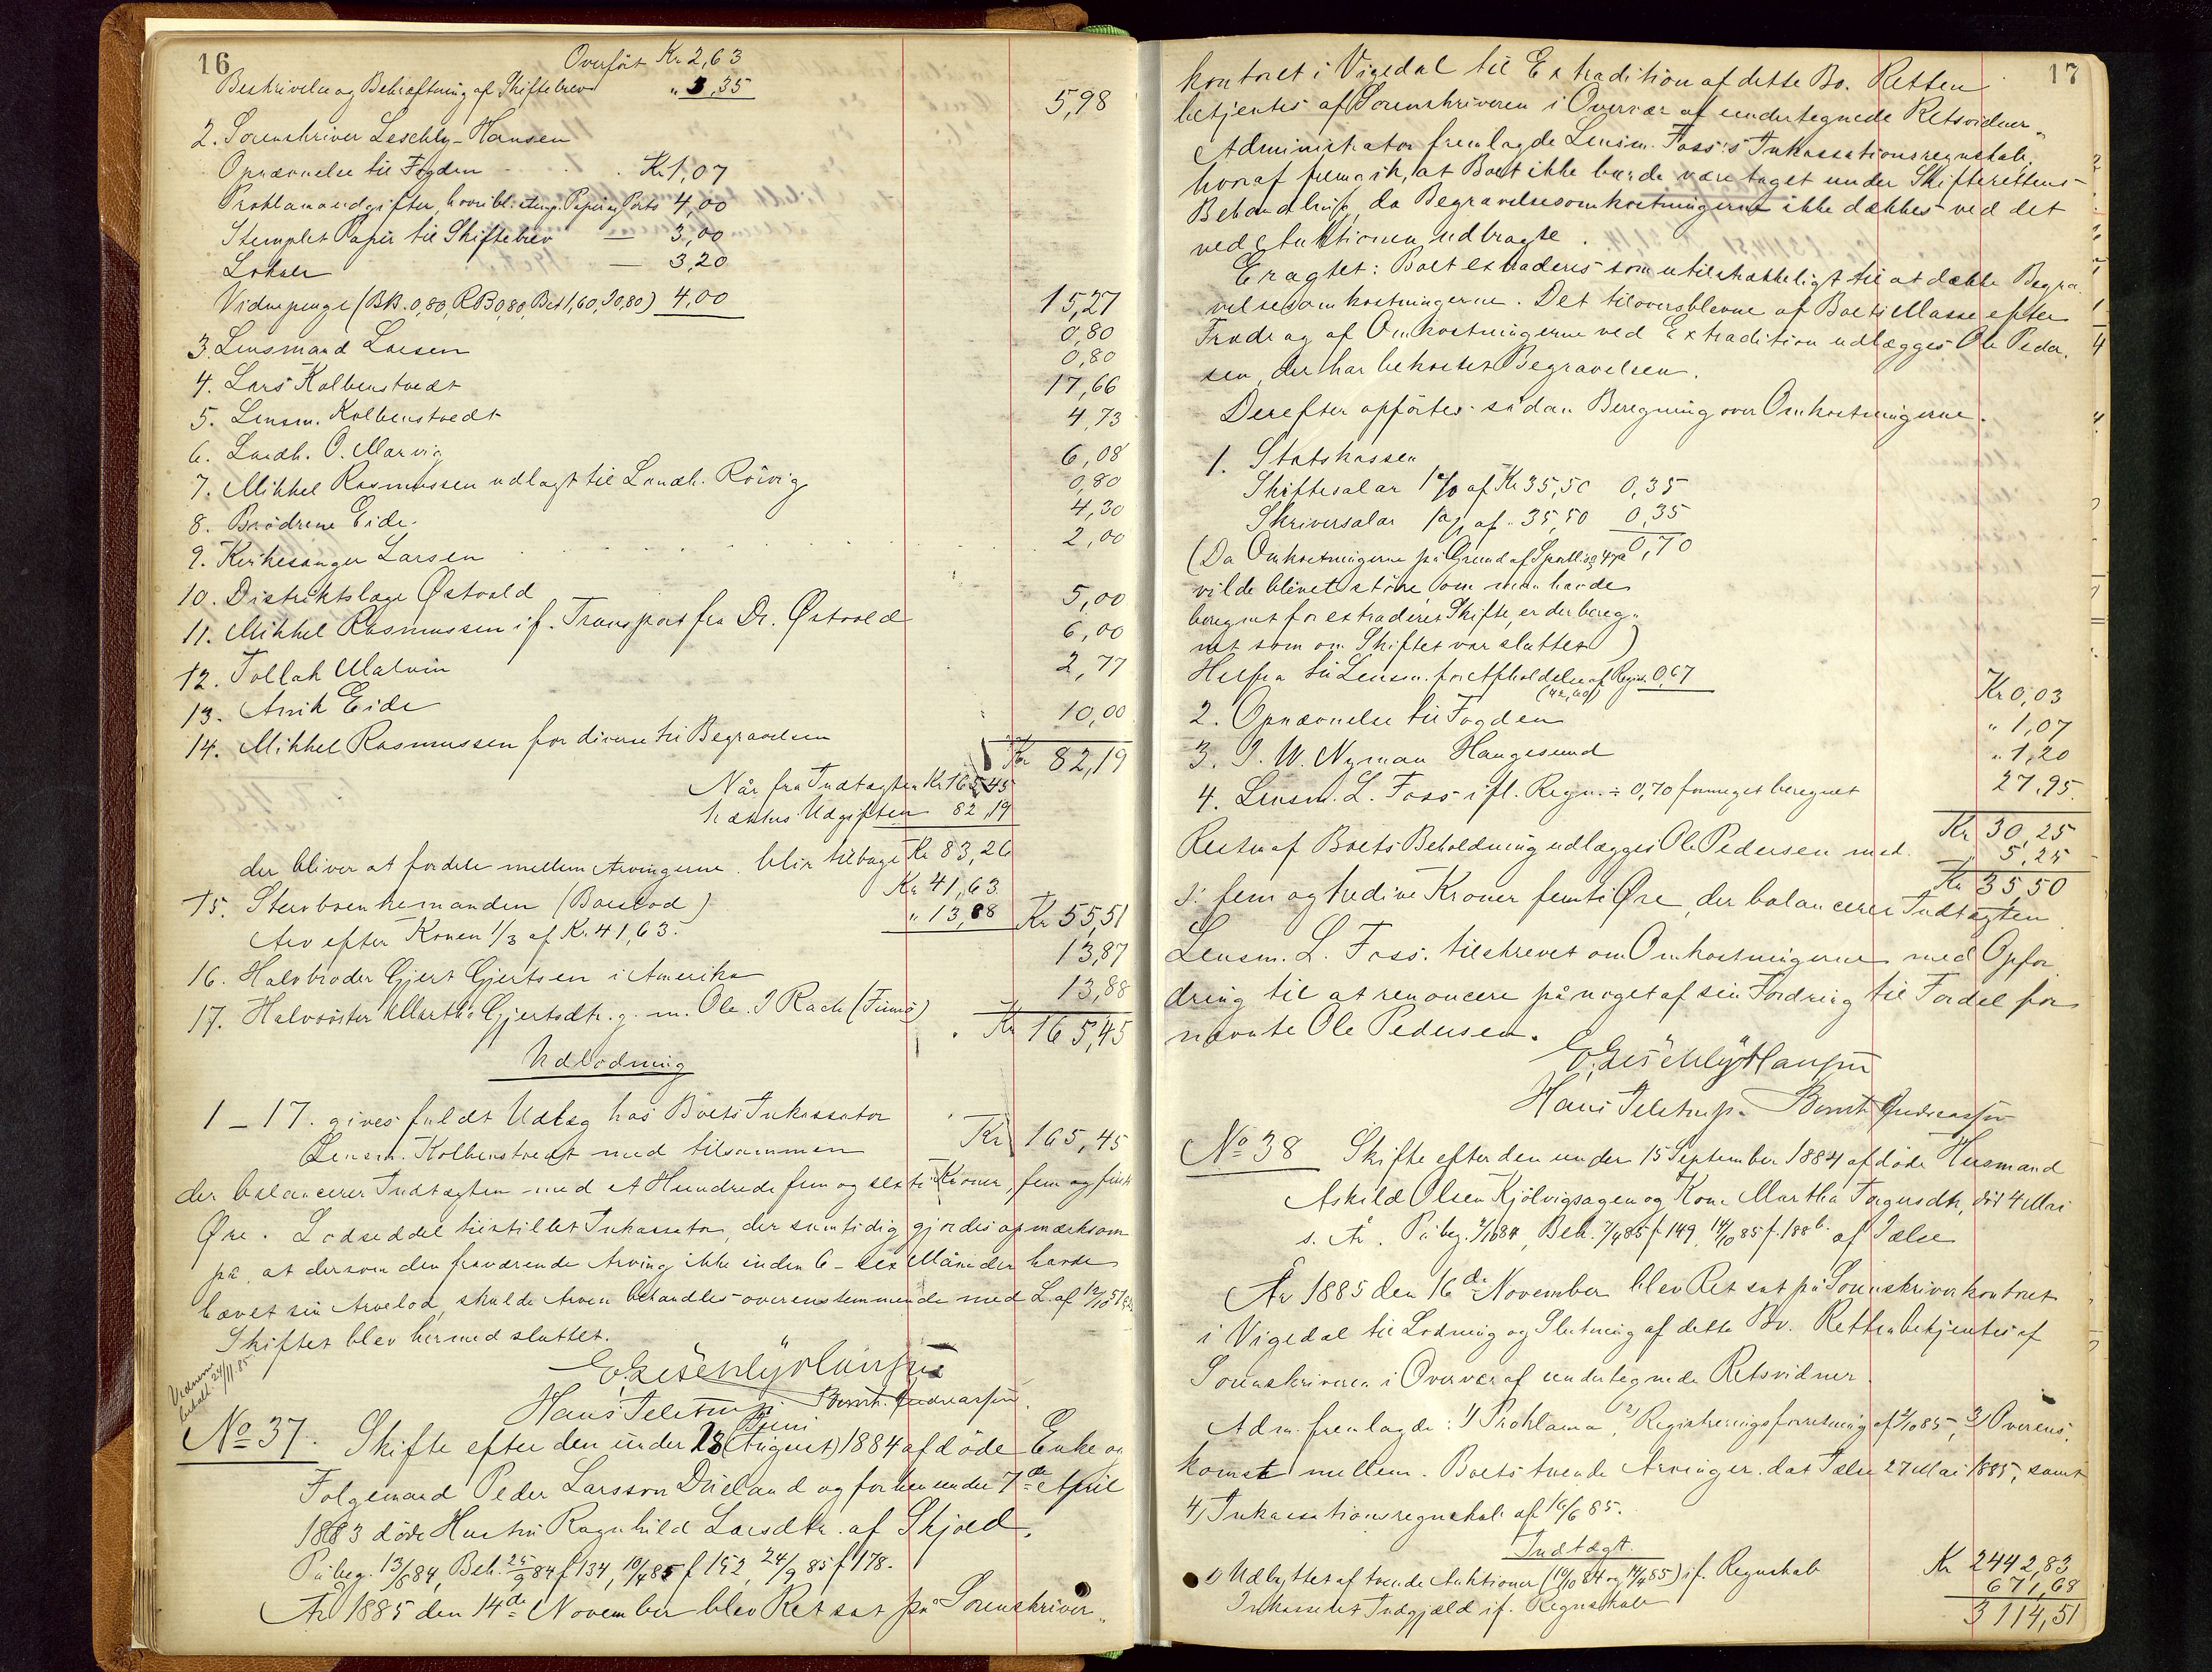 16
Overført Kr 2,63
Beskrivelse og Bekræftning af Skiftebrev " 3,35 5,98
2. Sorenskriver Leschly-Hansen
Opnævnelse til Fogden Kr 1,07
Proklamaudgifter, hvori bl. stemp. Papir og Porto 4,00
Stemplet Papir til Skiftebrev — 3,00
Lokale — 3,20
Vidnepenge (BB. 0,80, RB 0,80, Bes 1,60, 0,80) 4,00 15,27
3. Lensmand Larsen 0,80
4. Lars Kolbenstvedt 0,80
5. Lensm. Kolbenstvedt 17,66
6. Landh. O. Marvig 4,73
7. Mikkel Rasmussen udlagt til Landh. Röivig 6,08
8. Brödrene Eide. 0,80
9. Kirkesanger Larsen 4,30
2,00
10. Distriktslæge Østvold
11. Mikkel Rasmussen if. Transport fra Dr. Østvold 5,00
12. Tollak Malvin 6,00
13. Anrik Eide 2,77
14. Mikkel Rasmussen for diverse til Begravelsen 10,00
Kr 82,19
Når fra Indtægten Kr 165,45
trækkes Udgiften 82,19
der bliver at fordele mellem Arvingerne. blir tilbage Kr 83,26
15. Stervboenkemanden (Boeslod) Kr 41,63
Arv efter Konen 1/3 af Kr. 41,63. " 13,88 Kr 55,51
16. Halvbroder Gjert Gjertsen i Amerika 13,87
17. Halvsöster Martha Gjertsdtr. g. m. Ole I Rach (Finnö) 13,88
Kr 165,45
Udlodning
1 – 17. gives fuldt Udlæg hos Boets Inkassator
Lensm. Kolbenstvedt med tilsammen Kr 165,45
der balancerer Indtægten med et Hundrede fem og sexti Kroner, fem og firti
Øre. Lodseddel tilstillet Inkassator, der samtidig gjordes opmærksom
på, at dersom den fraværende Arving ikke inden 6 – sex Måneder havde
hævet sin Arvelod, skulde Arven behandles overensstemmende med L. af 12/10 57
Skiftet blev hermed sluttet.
E. Leschly Hansen
Hans Teletrup. Bernt Andreassen.
Vidnem. betalt. 24/11 85
No 37. Skifte efter den under 28 Juni (August) 1884 afdöde Enke og
Folgemand Peder Larsson Dueland og forhen under 7de April
1883 döde Hustru Ragnhild Larsdtr. af Skjold.
Påbeg. 13/8 84, Beh. 25/9 84 f 134, 10/4 85 f 152, 24/9 85 f 178.
År 1885 den 14de November blev Ret sat på Sorenskriver-
17
kontoret i Vigedal til Extradition af dette Bo. Retten
betjentes af Sorenskriveren i Overvær af undertegnede Retsvidner.
Administrator fremlagde Lensm. Foss's Inkassationsregnskab,
hvoraf fremgik, at Boet ikke burde være taget under Skifterettens
Behandling, da Begravelsesomkostningerne ikke dækkes ved det
ved Auktionen udbragte.
Eragtet: Boet extraderes som utilstrækkeligt til at dække Begra-
velsesomkostningerne. Det tiloversblevne af Boets Masse efter
Fradrag af Omkostningerne ved Extradition udlægges Ole Peder-
sen, der har bekostet Begravelsen.
Derefter opförtes sådan Beregning over Omkostningerne.
1. Statskassen
Skiftesalar 1 % af Kr 35,50 0,35
Skriversalar 1 % af " 35,50 0,35
0,70
(Da Omkostningerne på Grund af Sportl. § 47a
vilde blivet större om man havde
beregnet for extraderet Skifte, er der bereg-
net som om Skiftet var sluttet)
Herfra til Lensm. for Afholdelse af Regist. 0,67 Kr 0,03
2. Opnævnelse til Fogden " 1,07
3. I. W. Nyman Haugesund " 1,20
4. Lensm. L. Foss ifl. Regn. ÷ 0,70 formeget beregnet 27,95.
Kr 30,25
Resten af Boets Beholdning udlægges Ole Pedersen med. 5,25
Kr 35,50
s: fem og tredive Kroner femti Øre, der balancerer Indtægten
Lensm. L. Foss. tilskrevet om Omkostningerne med Opfor
dring til at renoncere på noget af sin Fordring til Fordel for
nævnte Ole Pedersen.
E. Leschly Hansen
Hans Teletrup. Bernt Andreassen
No 38 Skifte efter den under 15 September 1884 afdöde Husmand
Askild Olsen Kjölvigsagen og Kone Martha Torgersdtr., död 4 Mai
s. År. Påbeg. 84, Beh. 7/4 85 f 149, 14/10 85 f. 188 b. af Jælse
År 1885 den 16de November blev Ret sat på Sorenskriverkontoret
i Vigedal til Lodning og Slutning af dette Bo. Retten betjentes af
Sorenskriveren i Overvær af undertegnede Retsvidner.
Adm. fremlagde: 1) Proklama, 2) Registreringsforretning af 2/10 85, 3) Overens-
komst mellem Boets tvende Arvinger dat Jælse 27 Mai 1885, samt
4) Inkassationsregnskab af 16/6 85.
Indtægt.
1) Udbyttet af tvende Auktioner (10/10 84 og 14/4 85) if. Regnskab Kr 2442,83
Inkasseret Indgjæld if. Regnskab 671,68
3114,51